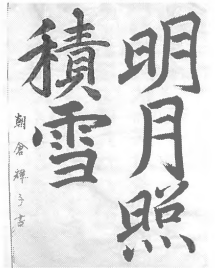 明月照
積雪
朝倉輝子書